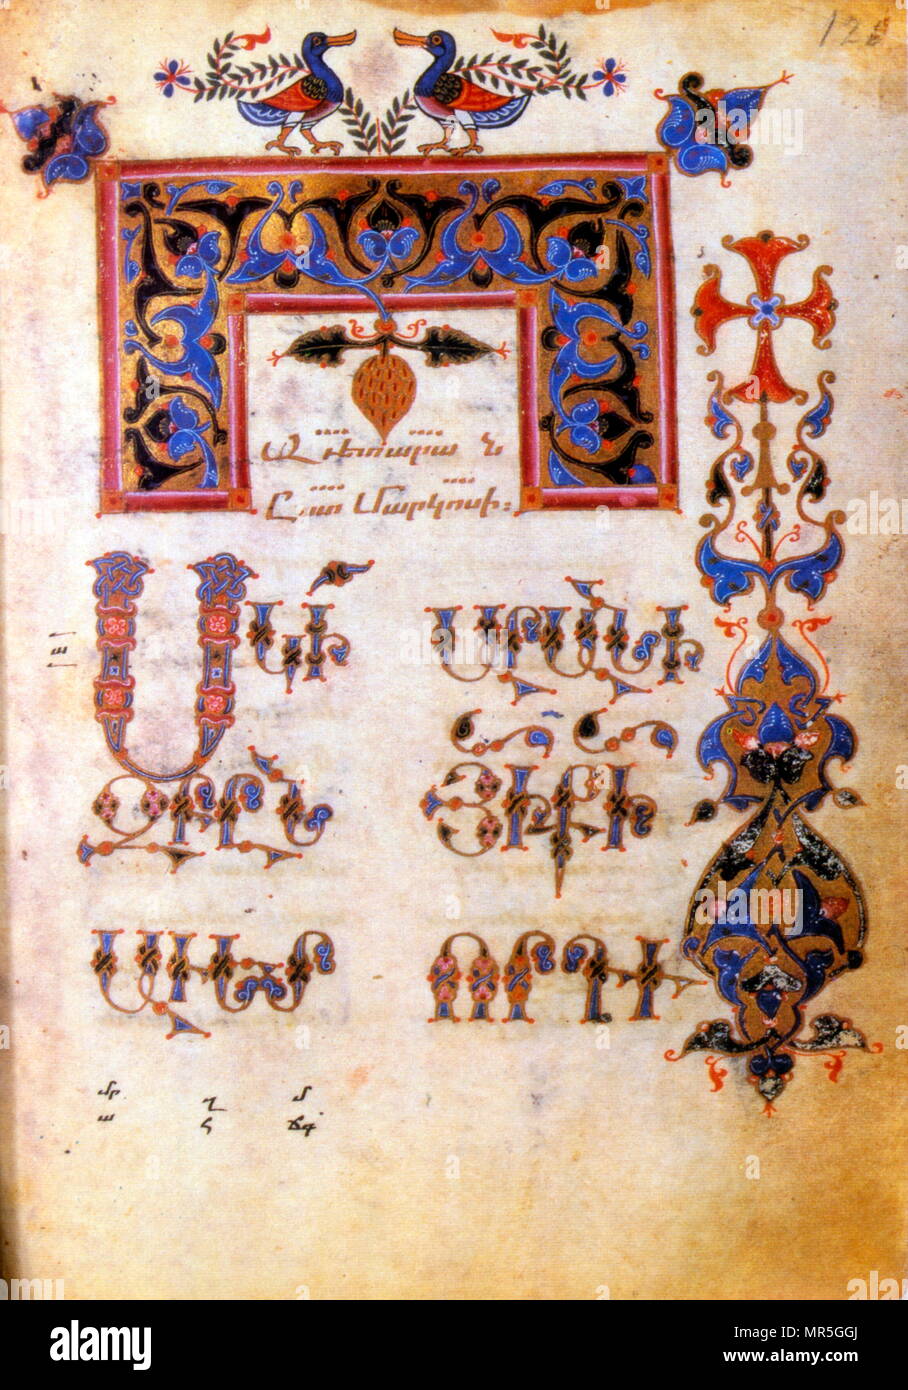 Աւետարան
Ըստ Մարկոսի:
ՍԿԻ
ԶԲԸՆ
ԱՒԵՏ
ԱՐԱՆԻ
ՅԻ ՔԻ
ՈՐԴՒ
alamy
Image ID: MR5GGJ
www.alamy.com